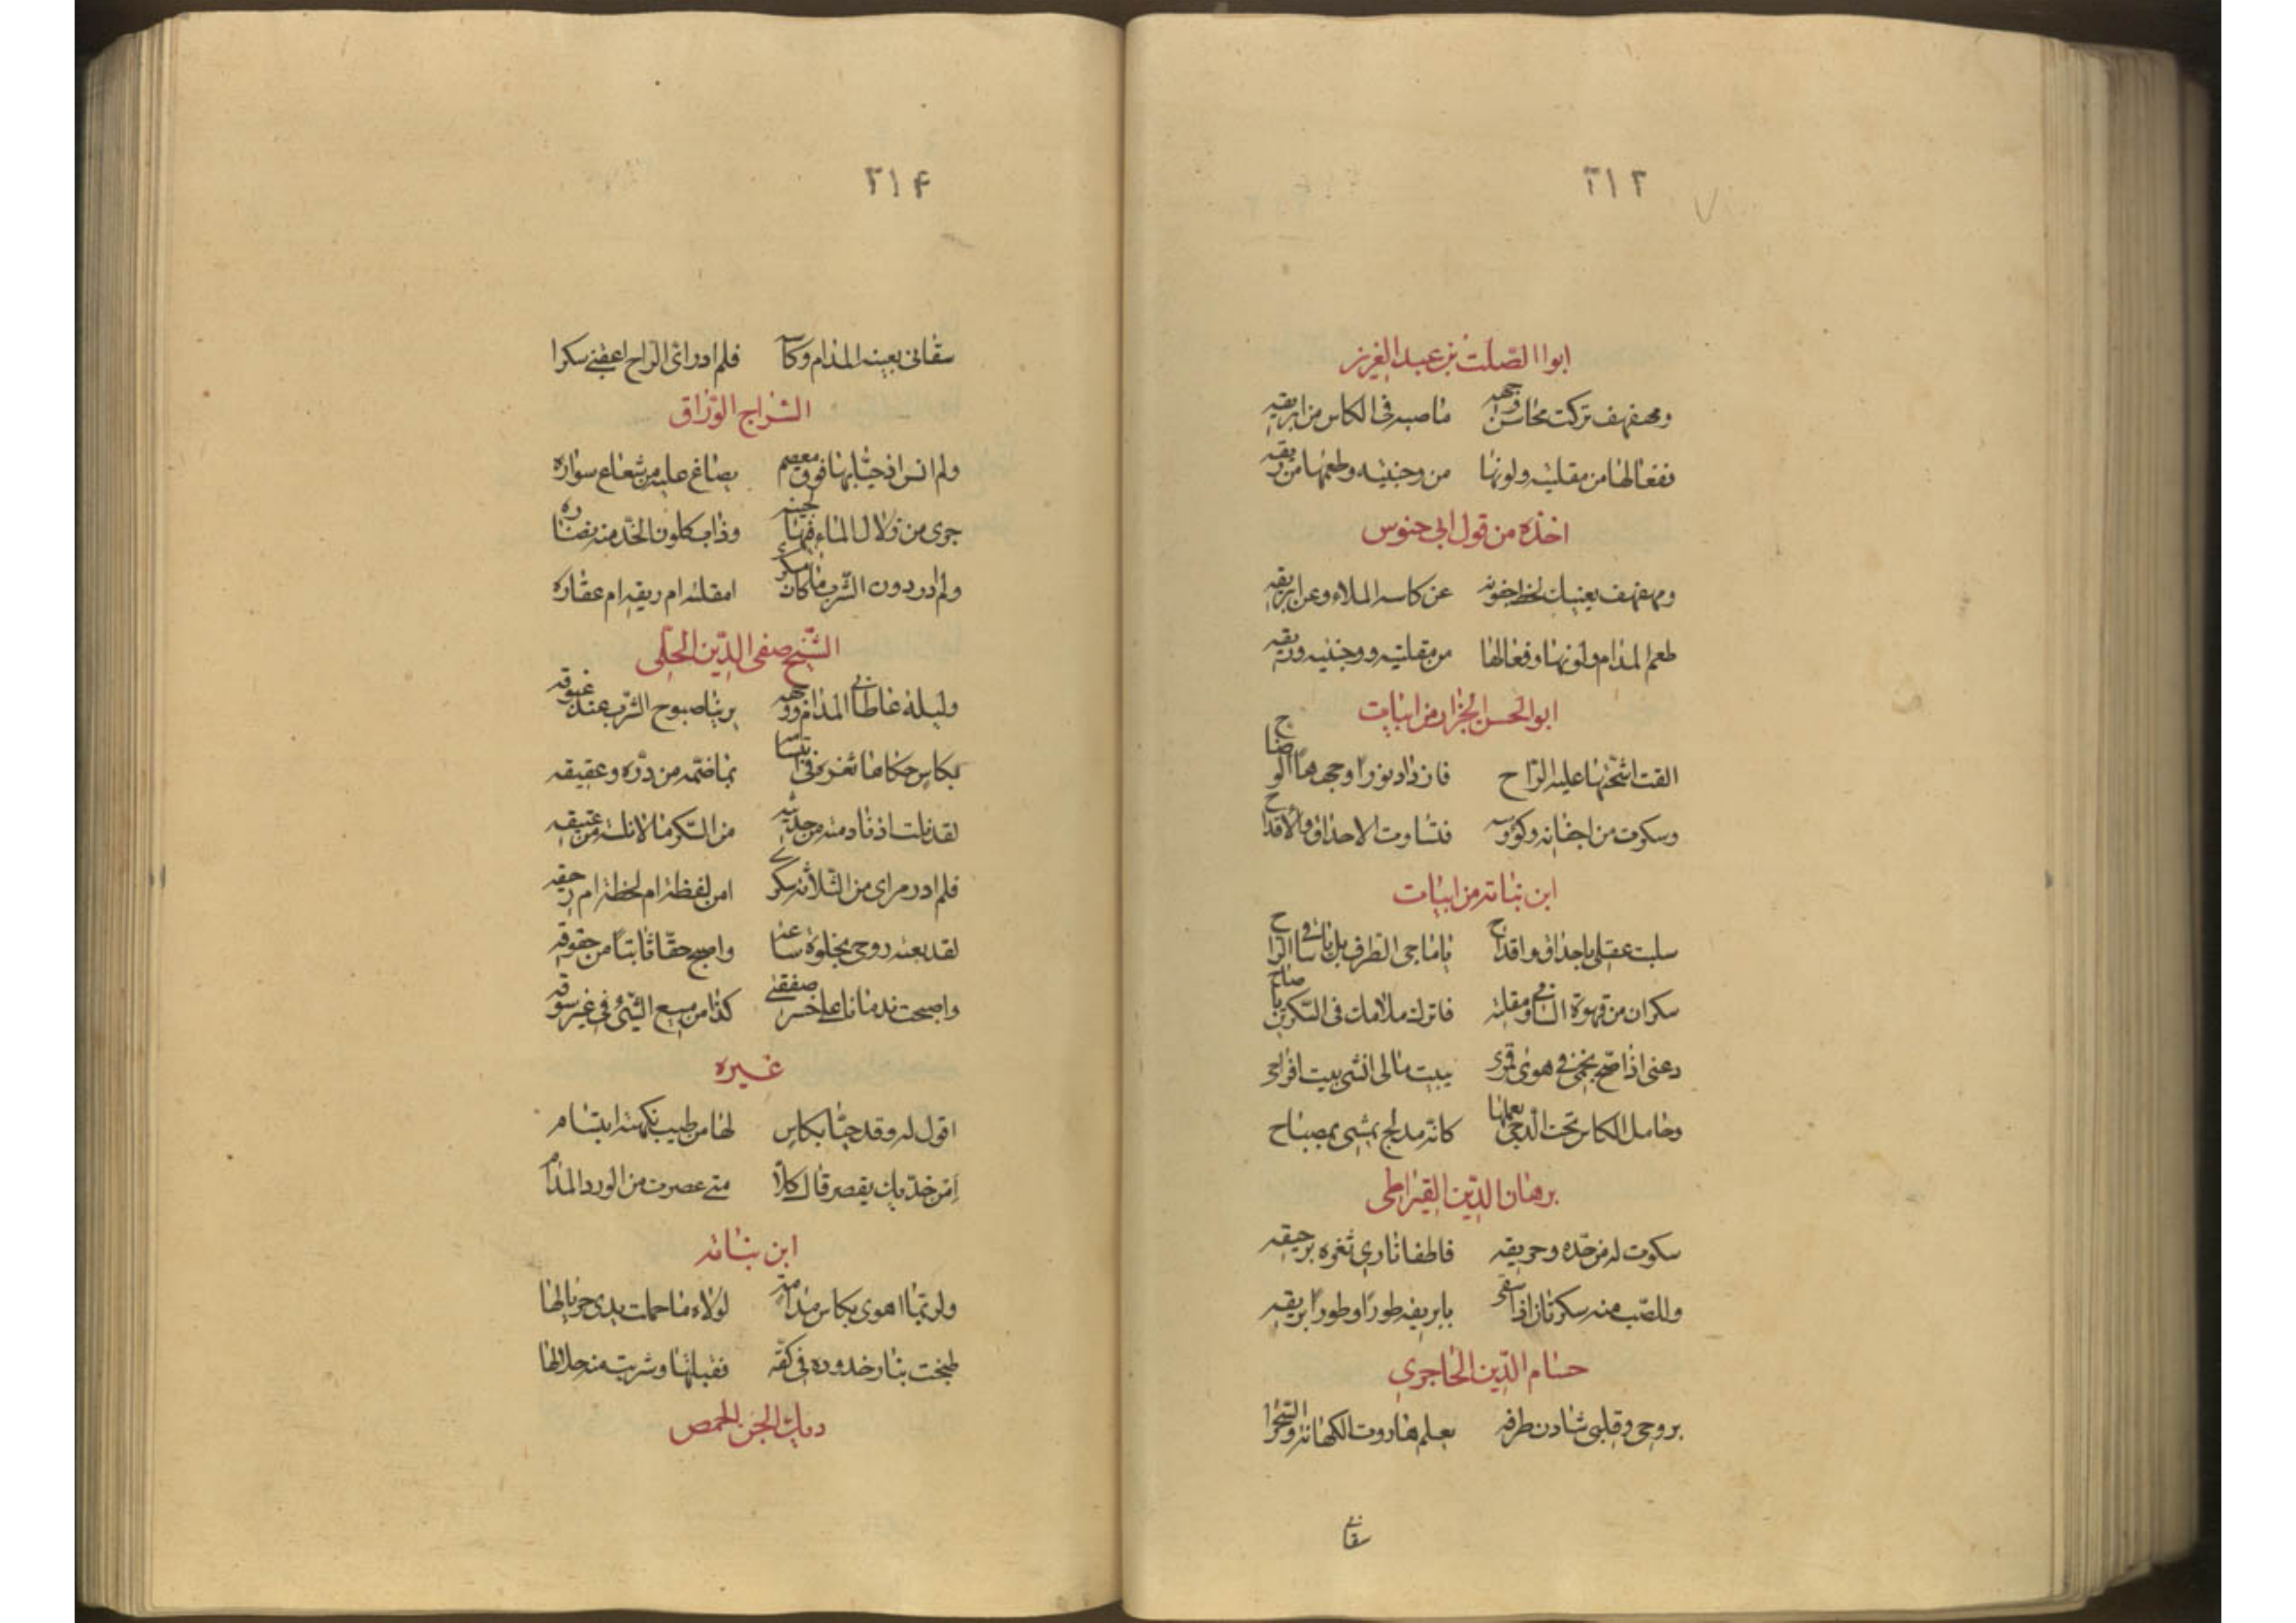 ٣١٣
ابوا الصّلت بن عبد العزيز
ومهفهف تركت محاسن وجهه ما صبه فى الكاس من ابريقه
ففعالها من مقلتيه ولونها من وجنتيه وطعمها من ريقه
اخذه من قول ابى حنوس
ومهفهف يغنيك لحظ جفونه عن كاسه الملاء وعن ابريقه
طعم المدام ولونها وفعالها من مقلتيه ووجنتيه وريقه
ابو الحسن الجزار من ابيات
القت اشعّتها عليه الراح فازداد نورًا وجهه الوضاح
وسكرت من اجفانه وكؤسه فتساوت الاحداق والاقداح
ابن نباته من ابيات
سلبت عقلى باحداق واقداح يا ساجى الطرف بل يا ساقى الراح
سكران من قهوة الساقى ومقلته فاترك ملامك فى السكرين يا صاح
دعنى اذا صح نجمى فى هوى قمرى بيت مالى انشى بيت افراحى
وحامل الكاس تحت الدجى يعملها كانّه مدلج يمشى بمصباح
برهان الدّين القيراطى
سكوت له من خدّه وحريقه فاطفا نارى ثغره برحيقه
وللصّب منه سكرتان اذا سقى بابريقه طورًا وطورًا بريقه
حسام الدّين الحاجرى
بروحى وقلبى شادن طرفه يعلم هاروت الكهانة والسّحرا
سقانى
٣١۴
سقانى بعينه المدام وكاسه فلم ادر اىّ الراح اعقبنى سكرا
السّراج الورّاق
ولم انس اذ حيّا بها فوق معصم يصاغ عليه من شعاع سواره
جرى من زلال الماء فيها لجينه وذاب كلون الخدّ منه نضاره
ولم ادر دون الشّرب ما كان مسكرى امقلته ام ريقه ام عقاره
الشّيخ صفى الدّين الحلّى
وليلة عاطانى المدام ووجهه يرينا صبوح الشّرب عند غبوقه
بكاس حكاها ثغره فى ابتسامه بما ضمّه من درّه وعقيقه
لقد نلت اذ نادمته من حديثه من السّكر ما لا نلته من عتيقه
فلم ادر من اى الثلاثة سكرى امن لفظه ام لحظه ام رحيقه
لقد بعته روحى بخلوة ساعة واصبح حقّا ثابتًا من حقوقه
واصبحت ندمانا على خسر صفقتى كذا من يبيع الشّئ فى غير سوقه
غيره
اقول له وقد حيّا بكاس لها من طيب نكهته ابتسام
امن خدّيك يعصر قال كلّا متى عصرت من الورد المدام
ابن نباته
ولربّما اهوى بكاس مدامة لولاه ما حملت يدى جريالها
طبخت بنار خدوده فى كفّه فقبلتها وشربت منه حلالها
ديك الجن الحمص